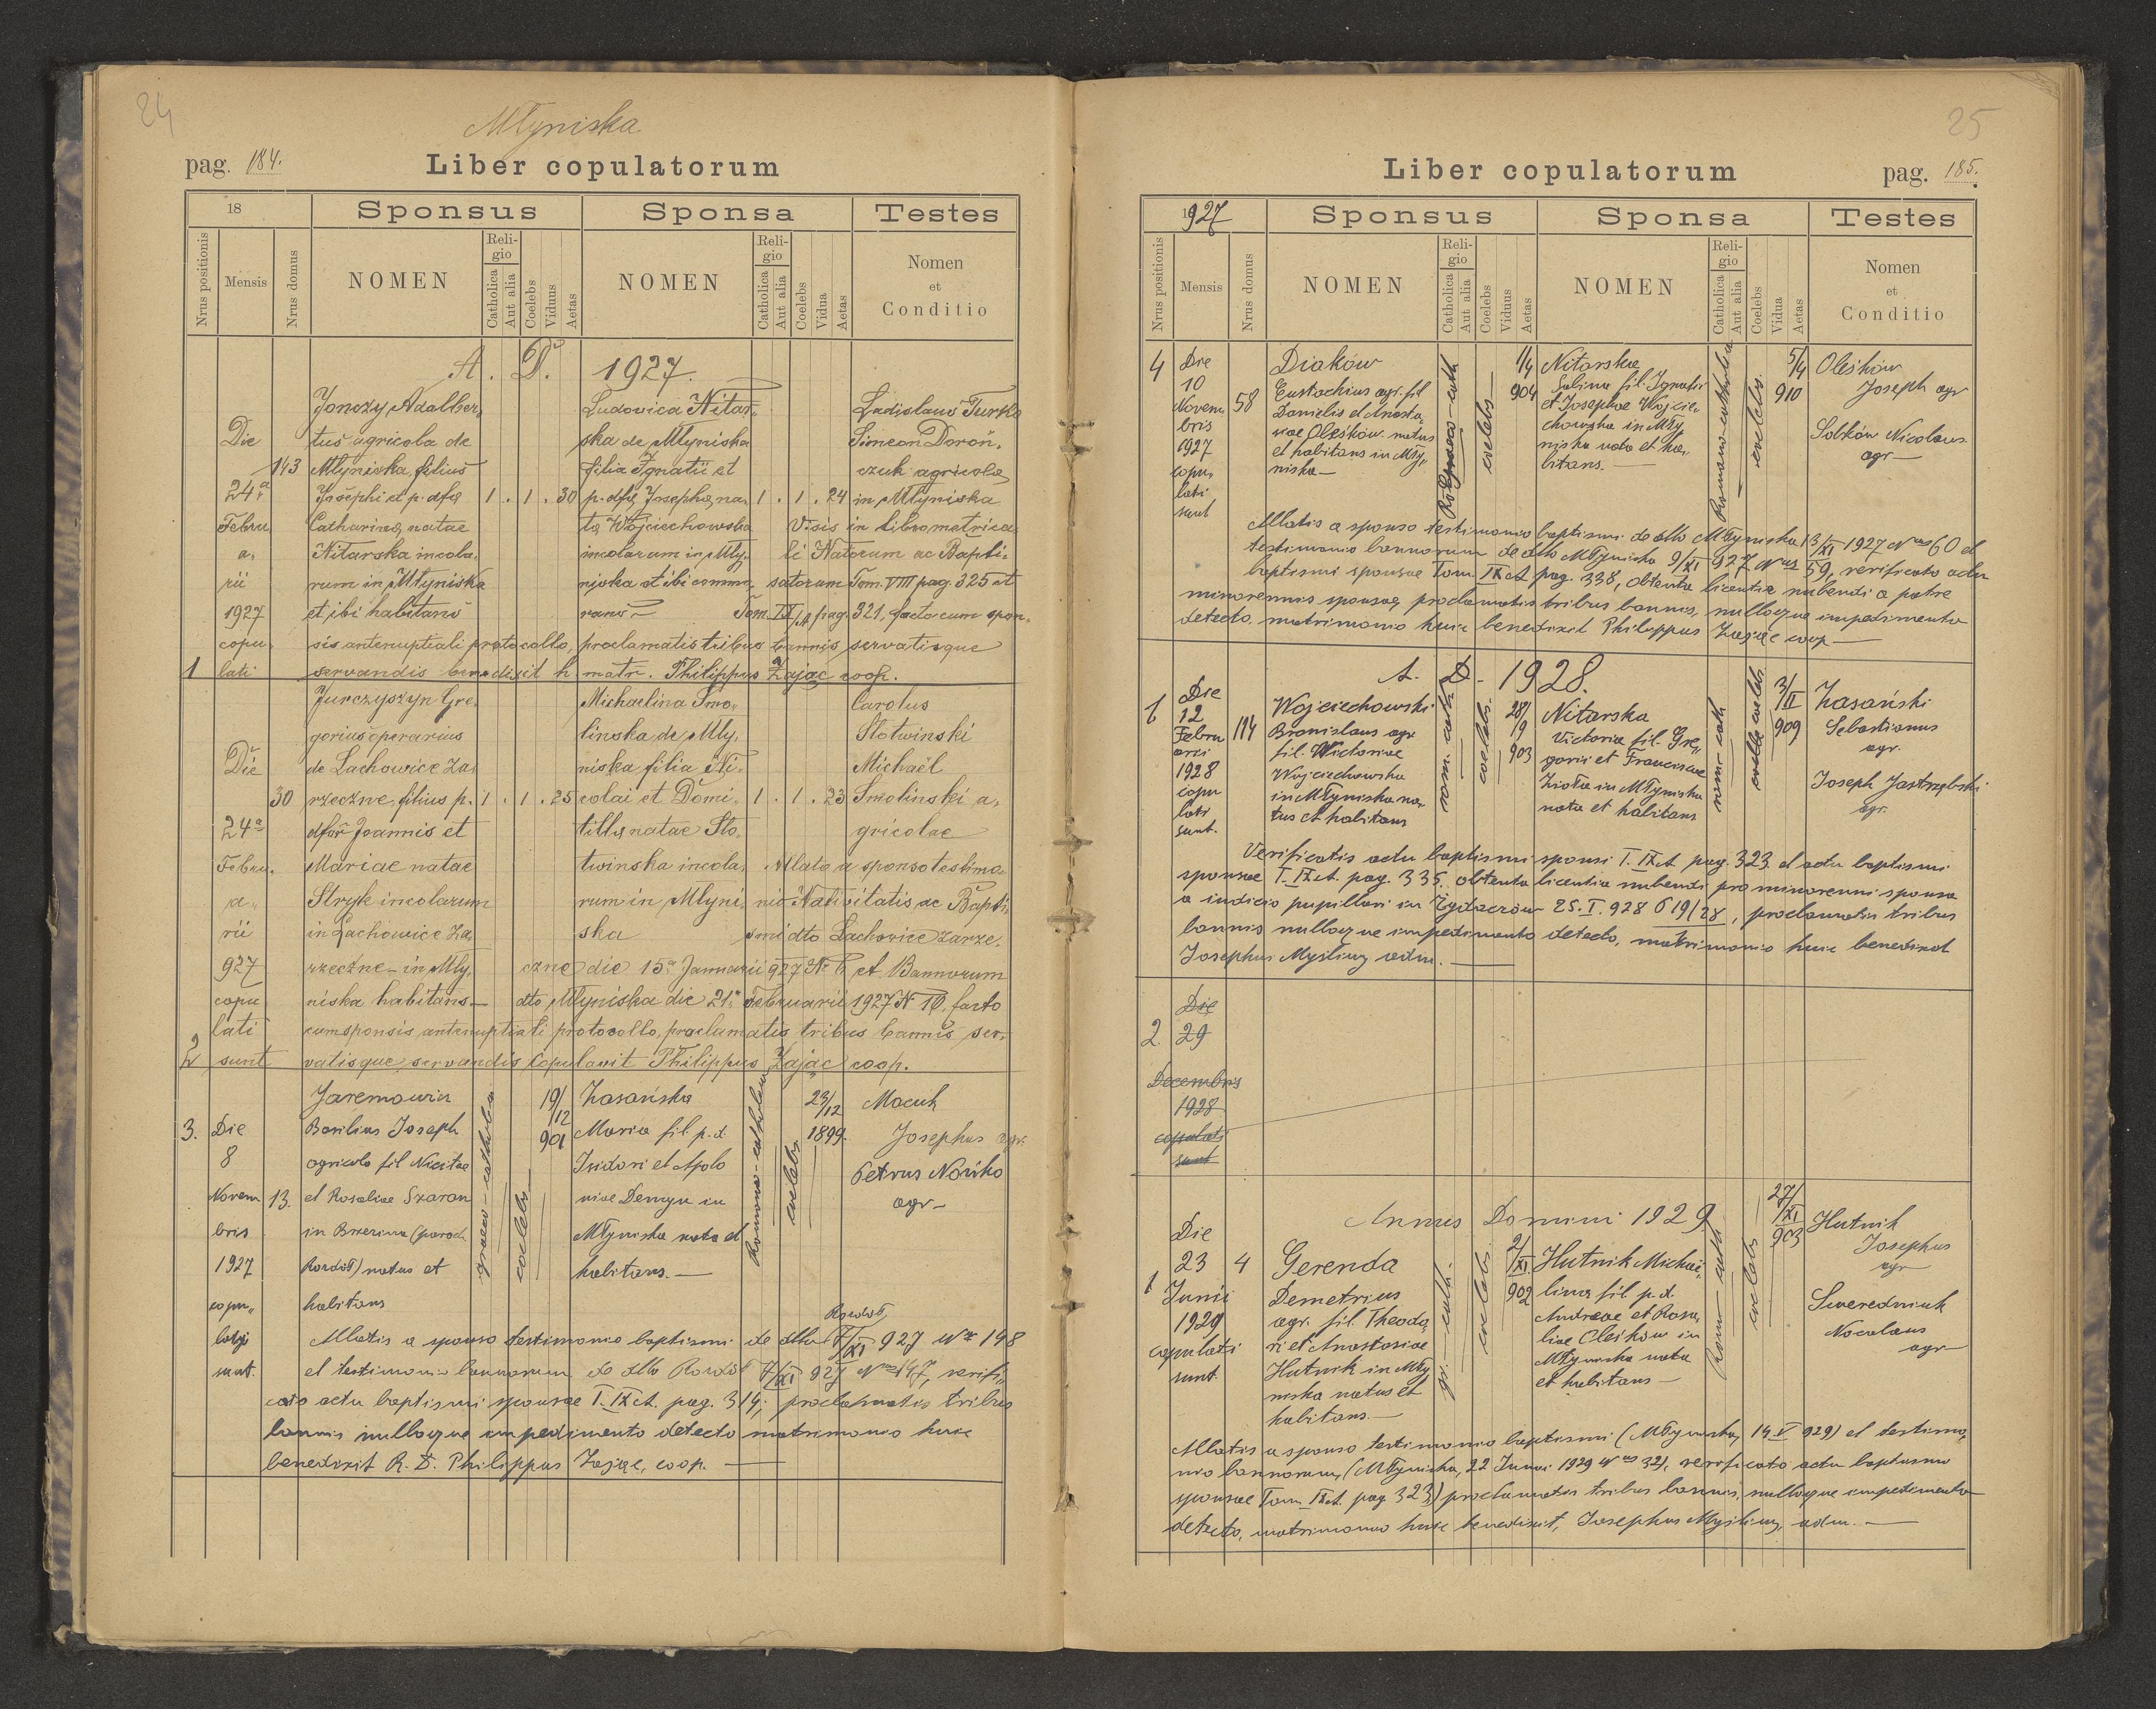 24
Młyniska
pag. 184.
Liber copulatorum
18
Sponsus
Sponsa
Testes
Nrus positionis
Mensis
Nrus domus
NOMEN
Religio
Catholica
Aut alia
Coelebs
Viduus
Aetas
NOMEN
Religio
Catholica
Aut alia
Coelebs
Vidua
Aetas
Nomen
et
Conditio
A. D. 1927.
1
Die
24a
Febru
a„
rii
1927
copu„
lati
143
Adalber„
tus agricola de
Młyniska, filius
Josephi et p. dfę
Catharinę natae
Nitarska incola„
rum in Młyniska
et ibi habitans
1 . 1 . 30
Ludovica Nitar„
ska de Młyniska
filia Ignatii et
p. dfę Josephę na„
tę Wojciechowska
incolarum in Mły„
niska et ibi commo„
rans
1 . 1 . 24
Ladislaus Turek
Simeon Doroń„
czuk agricolę
in Młyniska
Visis in libro metrica„
li Natorum ac Bapti„
satorum Tom. VIII pag. 325 et
Tom. IX/ct pag. 321, facto cum spon„
sis antenuptiali protocollo, proclamatis tribus bannis servatisque
servandis benedixit h. matr. Philippus Zając coop.
2
Die
24a
Febru„
a„
rii
927
copu
lati
sunt
30
Jurczyszyn Gre„
gorius operarius
de Lachowice Za„
rzeczne, filius p.
dfor Joannis et
Mariae natae
Stryk incolarum
in Lachowice Za„
rzeczne – in Mły„
niska habitans –
1 . 1 . 25
Michaelina Smo„
linska de Mły„
niska filia Ni„
colai et Domi„
tillę natae Sło„
twinska incola„
rum in Młyni„
ska
1 . 1 . 23
Carolus
Słotwinski
Michaël
Smolinski a„
gricolae
Allato a sponso testimo„
nio Nativitatis ac Bapti„
smi dto Lachowice Zarze„
czne die 15a Januarii 927 Nr 6 et Bannorum
dto Młyniska die 21a Februarii 1927 N 10, facto
cum sponsis antenuptiali protocollo, proclamatis tribus bannis ser„
vatisque servandis copulavit Philippus Zając coop.
3.
Die
8
Novem
bris
1927
copu„
lati
sunt.
13.
Basilius Joseph
agricola fil. Nicitae
et Rosaliae Szaran
in Brzezina (paroch.
Rozdół) natus et
habitans
graeco-catholica
coelebs
19/12
901
Zasańska
Maria fil. p. d.
Isidori et Apolo
niae Demyn in
Młyniska nata et
habitans. —
Romano-catholica
coelebs
23/12
1899.
Macuk
Josephus agr.
Petrus
agr –
Allatis a sponso testimonio baptismi de dto Rozdół 7/XI 927 Nr 148
et testimonio bannorum de dto Rozdół 7/XI 927 Nrus 147, verifi„
cato actu baptismi sponsae T. IX ct. pag. 314, proclamatis tribus
bannis nulloque impedimento detecto matrimonio huic
benedixit R. D. Philippus Zając, coop. —
25
Liber copulatorum
pag. 185.
1927
Sponsus
Sponsa
Testes
Nrus positionis
Mensis
Nrus domus
NOMEN
Religio
Catholica
Aut alia
Coelebs
Viduus
Aetas
NOMEN
Religio
Catholica
Aut alia
Coelebs
Vidua
Aetas
Nomen
et
Conditio
4
Die
10
Novem
bris
1927
copu„
lati
sunt
58
Diaków
Eustachius agr. fil.
Danielis et Anasta„
siae Oleśków natus
et habitans in Mły„
niska —
coelebs
1/4
904
Nitarska
Sabina fil. Ignatii
et Josephae Wojcie„
chowska in Mły„
niska nata et ha„
bitans. —
Romano-catholica
coelebs
5/4
910
Oleśków
Joseph agr
Sołków Nicolaus
agr —
Allatis a sponso testimonio baptismi de dto Młyniska 13/XI 1927 Nrus 60 et
testimonio bannorum de dto Młyniska 9/XI 927 Nrus 59, verificato actu
baptismi sponsae Tom. IX ct. pag. 338, obtenta licentia nubendi a patre
minorennis sponsae, proclamatis tribus bannis, nulloque impedimento
detecto, matrimonio huic benedixit Philippus Zając coop —
A. D. 1928.
1
Die
12
Febru
arii
1928
copu
lati
sunt.
114
Wojciechowski
Bronislaus agr.
fil. Victoriae
Wojciechowska
in Młyniska na„
tus et habitans
rom. cath.
coelebs.
28/9
903
Nitarska
Victoria fil. Gre„
gorii et Franciscae
Zioła in Młyniska
nata et habitans
rom – cath
coelebs
3/II
909
Zasański
Sebastianus
agr.
Joseph Jastrzębski
agr.
Verificatis actu baptismi sponsi T. IX ct. pag. 323 et actu baptismi
sponsae T. IX ct. pag. 335. obtenta licentia nubendi pro minorenni sponsa
a iudicio pupillari in Żydaczów 25. I. 928 619/28, proclamatis tribus
bannis nulloque impedimento detecto, matrimonio huic benedixit
Josephus Myśliwy adm. —
2.
Die
29
Decembris
1928
copulati
sunt
Annus Domini 1929
1
Die
23
Junii
1929
copulati
sunt.
4
Gerenda
Demetrius
agr. fil. Theodo„
ri et Anastasiae
Hutnik in Mły
niska natus et
habitans. —
gr. – cath.
coelebs.
2/XI
902
Hutnik Michae„
lina fil. p. d.
Andreae et Rosa„
liae Oleśków in
Młyniska nata
et habitans —
Rom – cath
coelebs
27/XI
903
Hutnik
Josephus
agr
Sweredniuk
Nicolaus
agr
Allatis a sponso testimonio baptismi (Młyniska, 14 V 929) et testimo„
nio bannorum, (Młyniska, 22 Junii 1929 Nrus 32), verificato actu baptismi
sponsae Tom. IX ct. pag. 323) proclamatis tribus bannis, nulloque impedimento
detecto, matrimonio huic benedixit, Josephus Myśliwy, adm. —